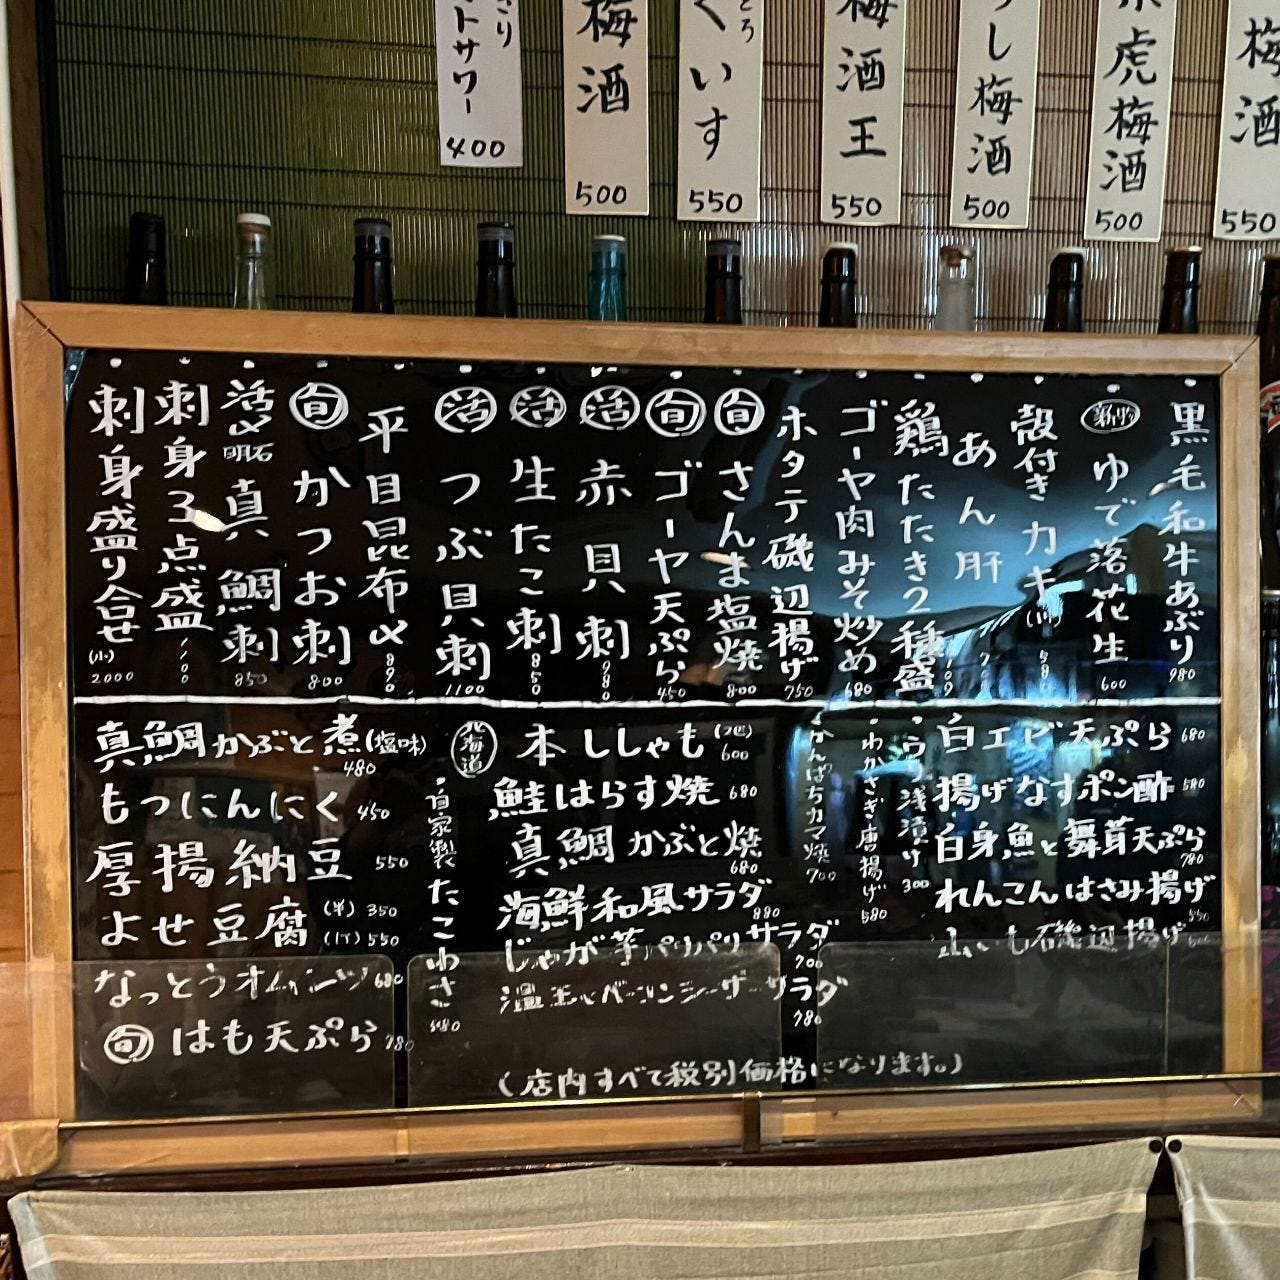 さり
トサワー
400
梅酒
500
とろ
くいす
550
梅酒王
550
し梅酒
500
虎梅酒
500
梅酒
550
黒毛和牛あぶり 980
新物 ゆで落花生 600
殻付きカキ(1ケ) 580
あん肝
鶏たたき2種盛
ゴーヤ肉みそ炒め 680
ホタテ磯辺揚げ 750
旬 さんま塩焼 800
旬 ゴーヤ天ぷら 450
活 赤貝刺 980
活 生たこ刺 850
活 つぶ貝刺 1100
平目昆布〆 890
旬 かつお刺 800
活〆明石真鯛刺 850
刺身3点盛 1100
刺身盛り合せ(小) 2000
真鯛かぶと煮(塩味) 480
もつにんにく 450
厚揚納豆 550
よせ豆腐 (半) 350
(1丁) 550
なっとうオムレツ 680
旬 はも天ぷら 780
・自家製たこわさ 480
北海道 本ししゃも (2匹) 600
鮭はらす焼 680
真鯛かぶと焼 680
海鮮和風サラダ 880
じゃが芋パリパリサラダ 700
温玉ベーコンシーザーサラダ 780
・かんぱちカマ焼 700
・わかさぎ唐揚げ 580
・うり浅漬け 300
白エビ天ぷら 680
揚げなすポン酢 580
白身魚と舞茸天ぷら 780
れんこんはさみ揚げ 550
山いも磯辺揚げ
(店内すべて税別価格になります。)